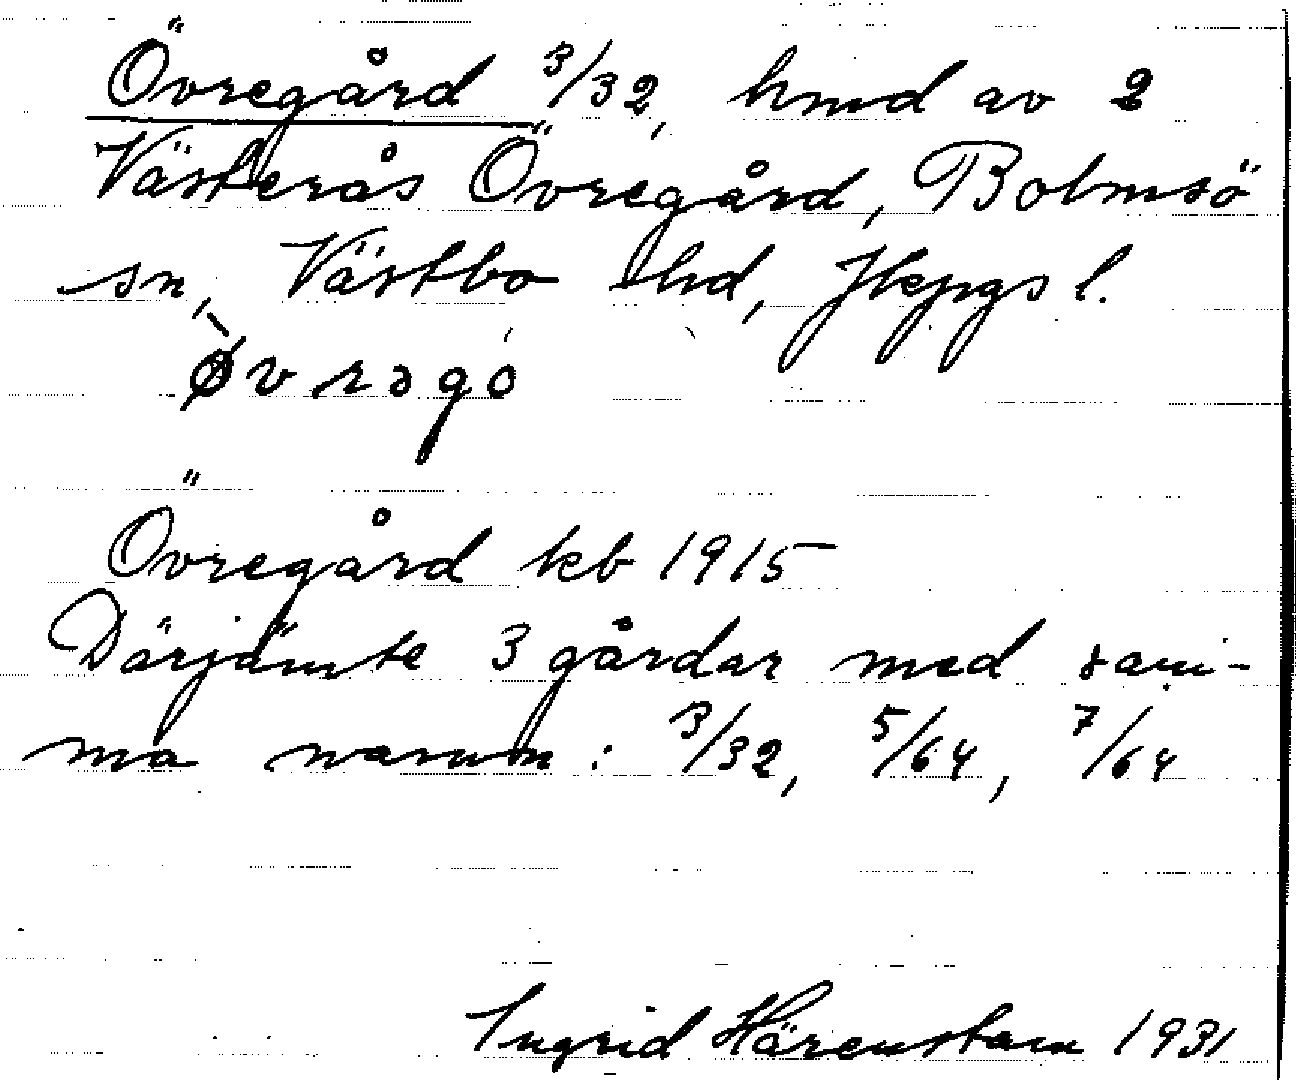 Övregård 3/32, hmd av 2
Västerås Övregård, Bolmsö
sn, Västbo hd, Jkpgs l.
`øvrəgo
Övregård kb 1915
Därjämte 3 gårdar med sam-
ma namn: 3/32, 5/64, 7/64
Ingrid Härenstam 1931